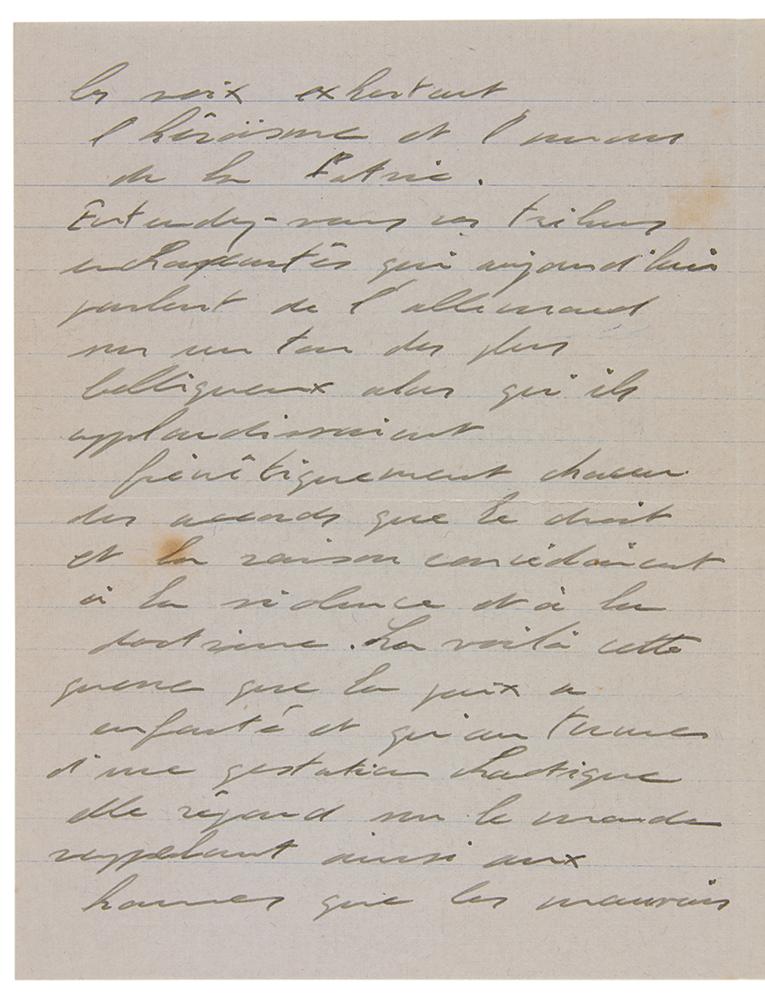 les voix exhortant
l'héroïsme et l'amour
de la Patrie.
Entendez-vous ces tribuns
qui aujourd'hui
parlent de l'allemand
sur un ton des plus
belliqueux alors qu'ils
applaudissaient
frénétiquement chacun
des accords que le droit
et la raison concédaient
à la violence et à la
doctrine. La voilà cette
guerre que la paix a
enfanté et qu'au termes
d'une gestation chaotique
elle répand sur le monde
rappelant ainsi aux
hommes que les mauvais